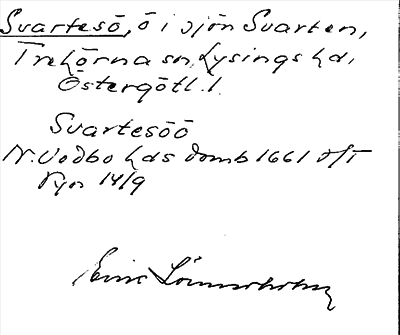 Svartesö, ö i sjön Svarten,
Trehörna sn, Lysings hd,
Östergötl. l.
Svartesöö
N. Vedbo hds domb 1661 ST
14/9